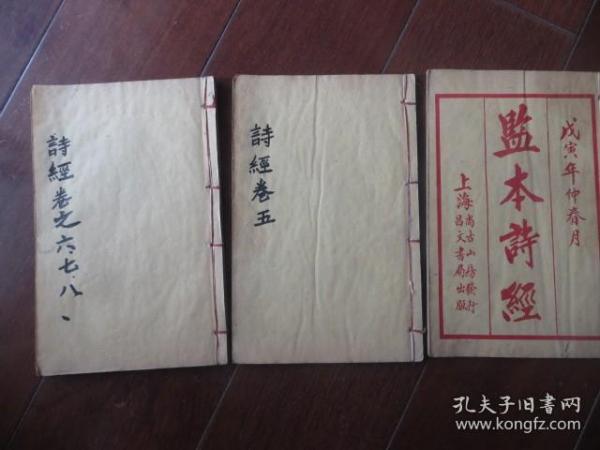 戊寅年仲春月
監本詩經
上海
尚古山房發行
昌文書局出版
詩經卷五
詩經卷之六、七、八、
孔夫子旧书网
www.kongfz.com